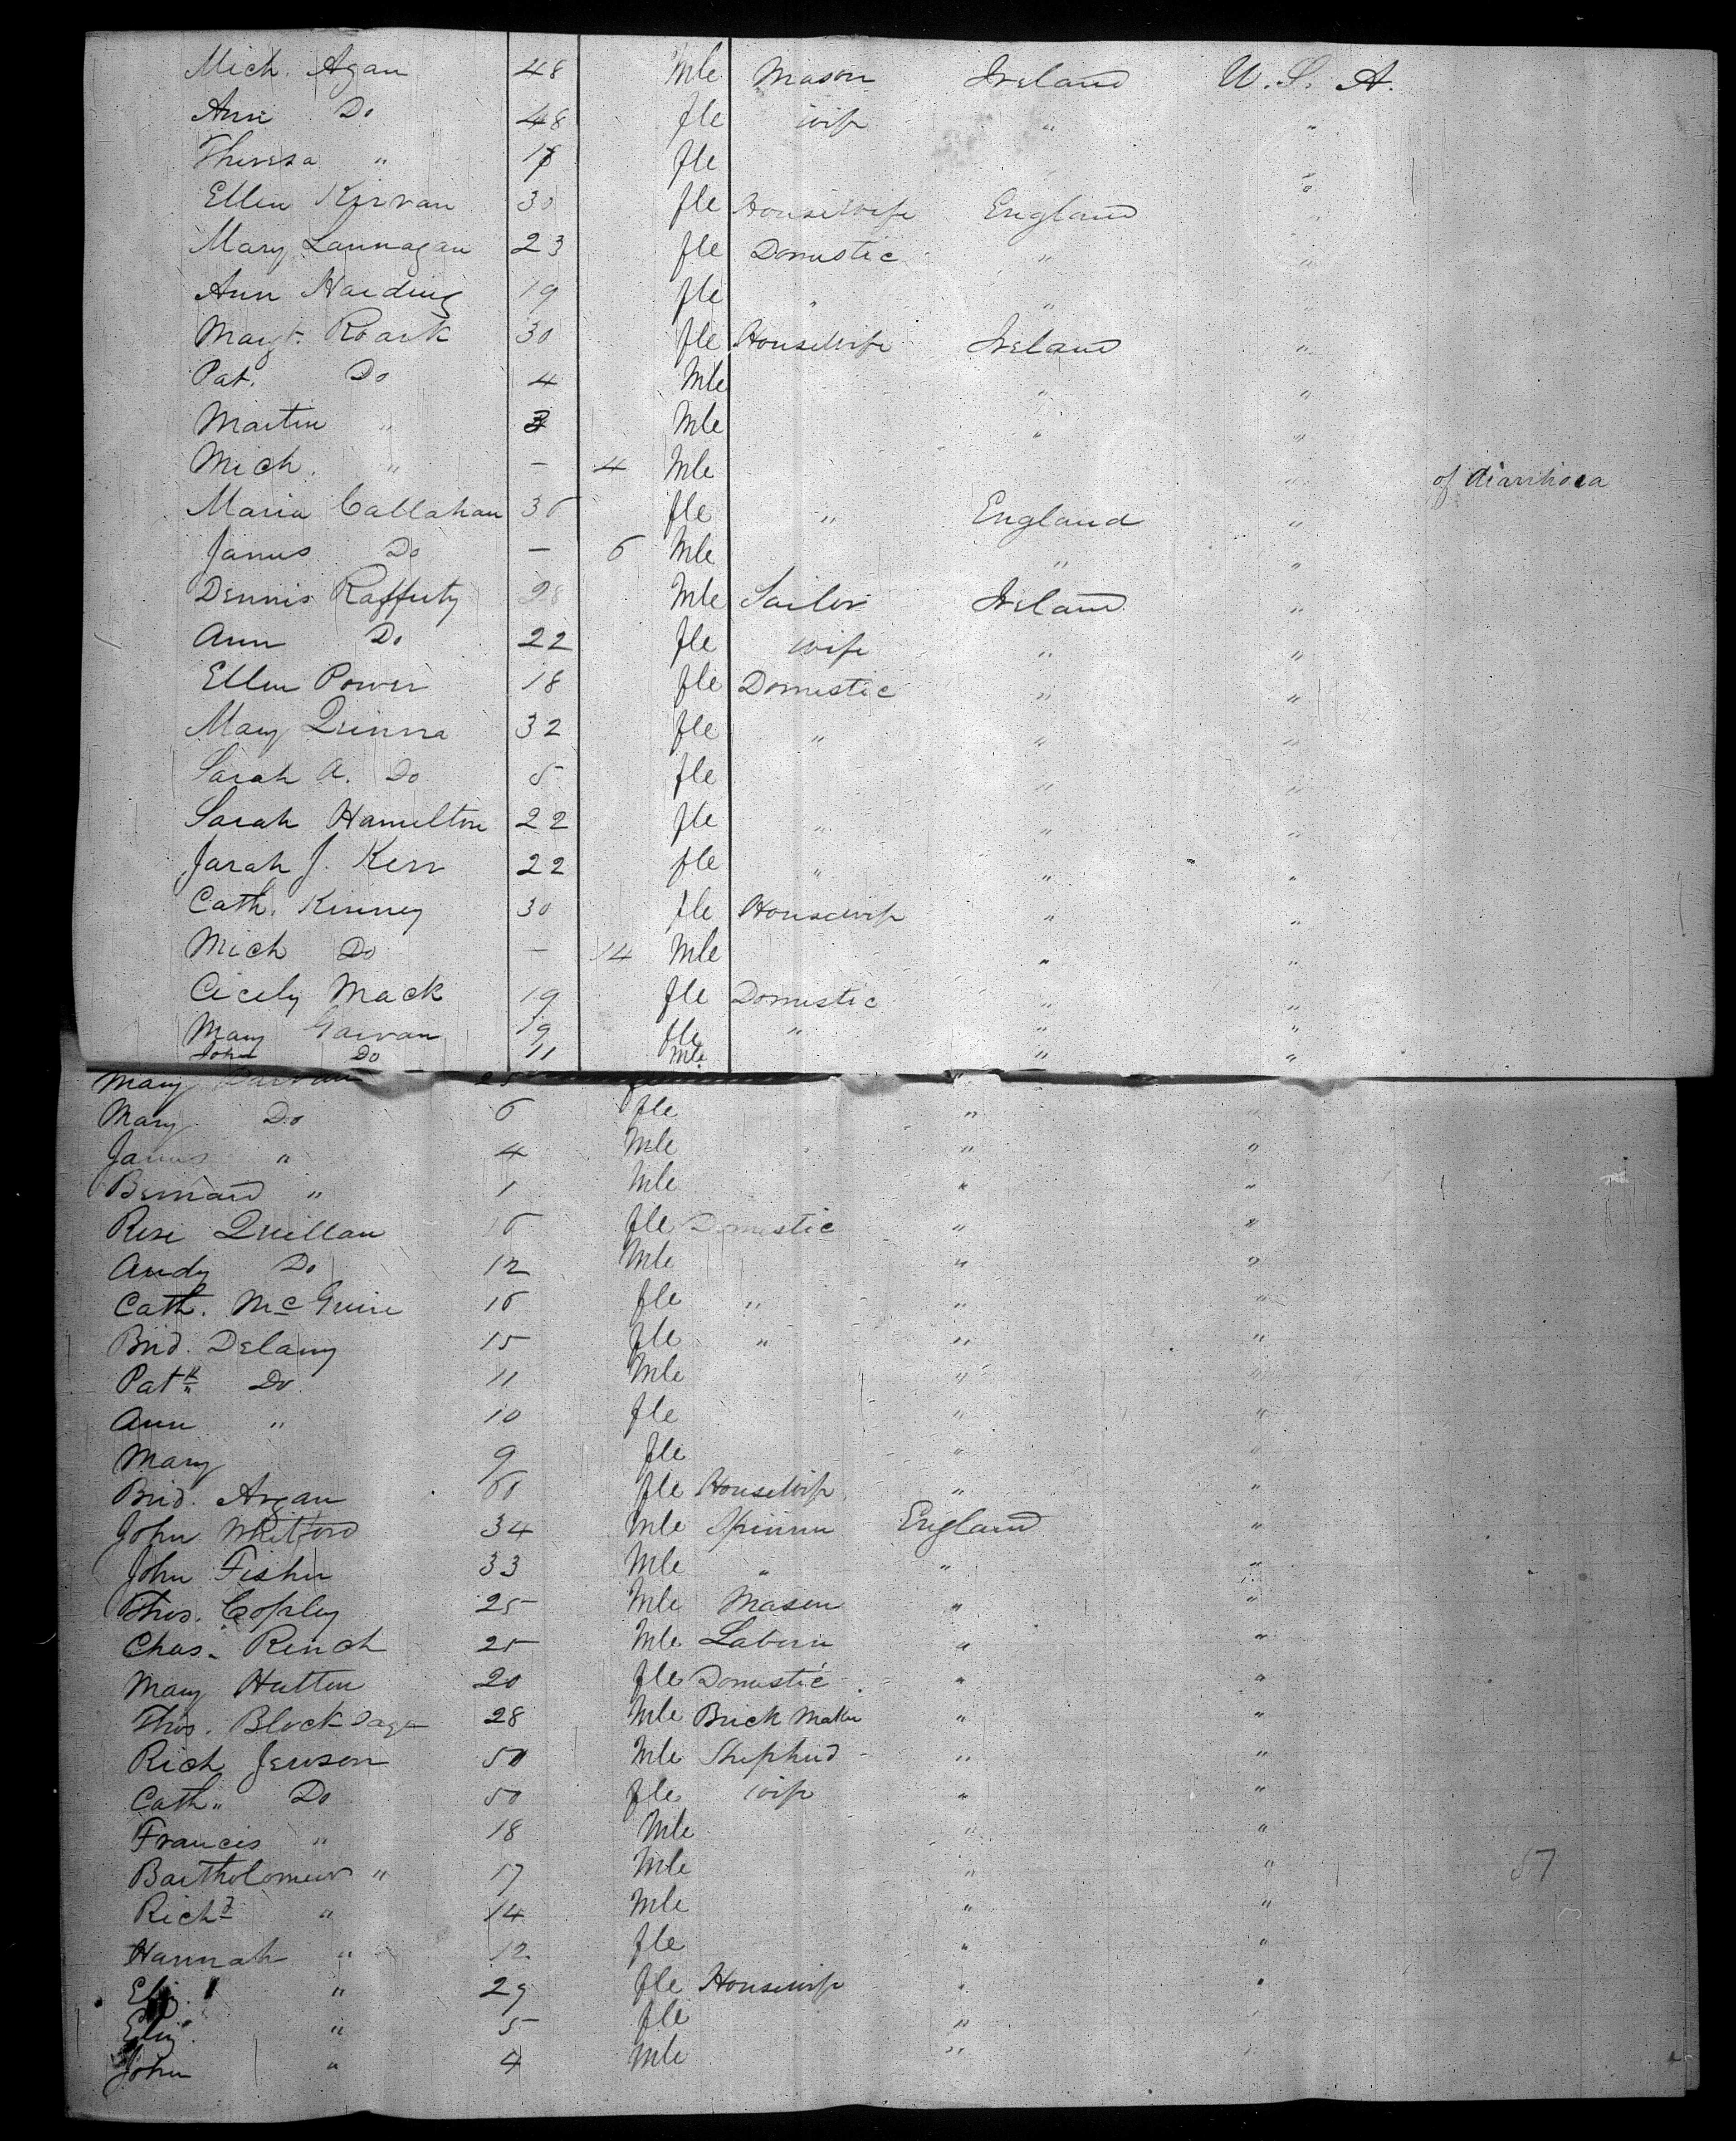 Mich. Agan 48 Mle Mason Ireland U. S. A.
Ann Do 48 fle wife " "
Theresa " fle "
Ellen Kirvan 30 fle Housewife England "
Mary Lannagan 23 fle Domestic " "
Ann Harding 19 fle " " "
Margt. Roark 30 fle Housewife Ireland "
Pat. Do 4 Mle " "
Martin " 3 Mle " "
Mich. " – 4 Mle " of diarrhoea
Maria Callahan 36 fle " England "
James Do – 6 Mle " "
Dennis Rafferty 28 Mle Sailor Ireland "
Ann Do 22 fle wife " "
Ellen Power 18 fle Domestic " "
Mary Quinna 32 fle " " "
Sarah A. Do 5 fle " "
Sarah Hamilton 22 fle " " "
Sarah J. Kerr 22 fle " " "
Cath. Kinney 30 fle Housewife " "
Mich Do – 14 Mle " "
Cicely Mack 19 fle Domestic " "
Mary Garvan 19 fle " " "
John Do 11 Mle " "
Mary 25 "
Mary Do 6 fle " "
James " 4 Mle " "
Bernard " 1 Mle " "
Rose Quillan 16 fle Domestic " "
Andy Do 12 Mle " "
Cath. McGuire 16 fle " " "
Brid. Delany 15 fle " " "
Patk Do 11 Mle " "
Ann " 10 fle " "
Mary 9 fle " "
Brid. Argan 60 fle Housewife " "
John Whitford 34 Mle Spinner England "
John Fisher 33 Mle " " "
Thos. Copley 25 Mle Mason " "
Chas. Rench 25 Mle Laborer " "
Mary Hutton 20 fle Domestic " "
Thos. Blocksage 28 Mle Brick Maker " "
Rich Jewson 50 Mle Shepherd " "
Cath " Do 50 fle wife " "
Francis " 18 Mle " "
Bartholomew " 17 Mle " " 57
Richd " 14 Mle " "
Hannah " 12 fle " "
Eliz. " 29 fle Housewife " "
Eliz. " 5 fle "
John " 4 Mle " "